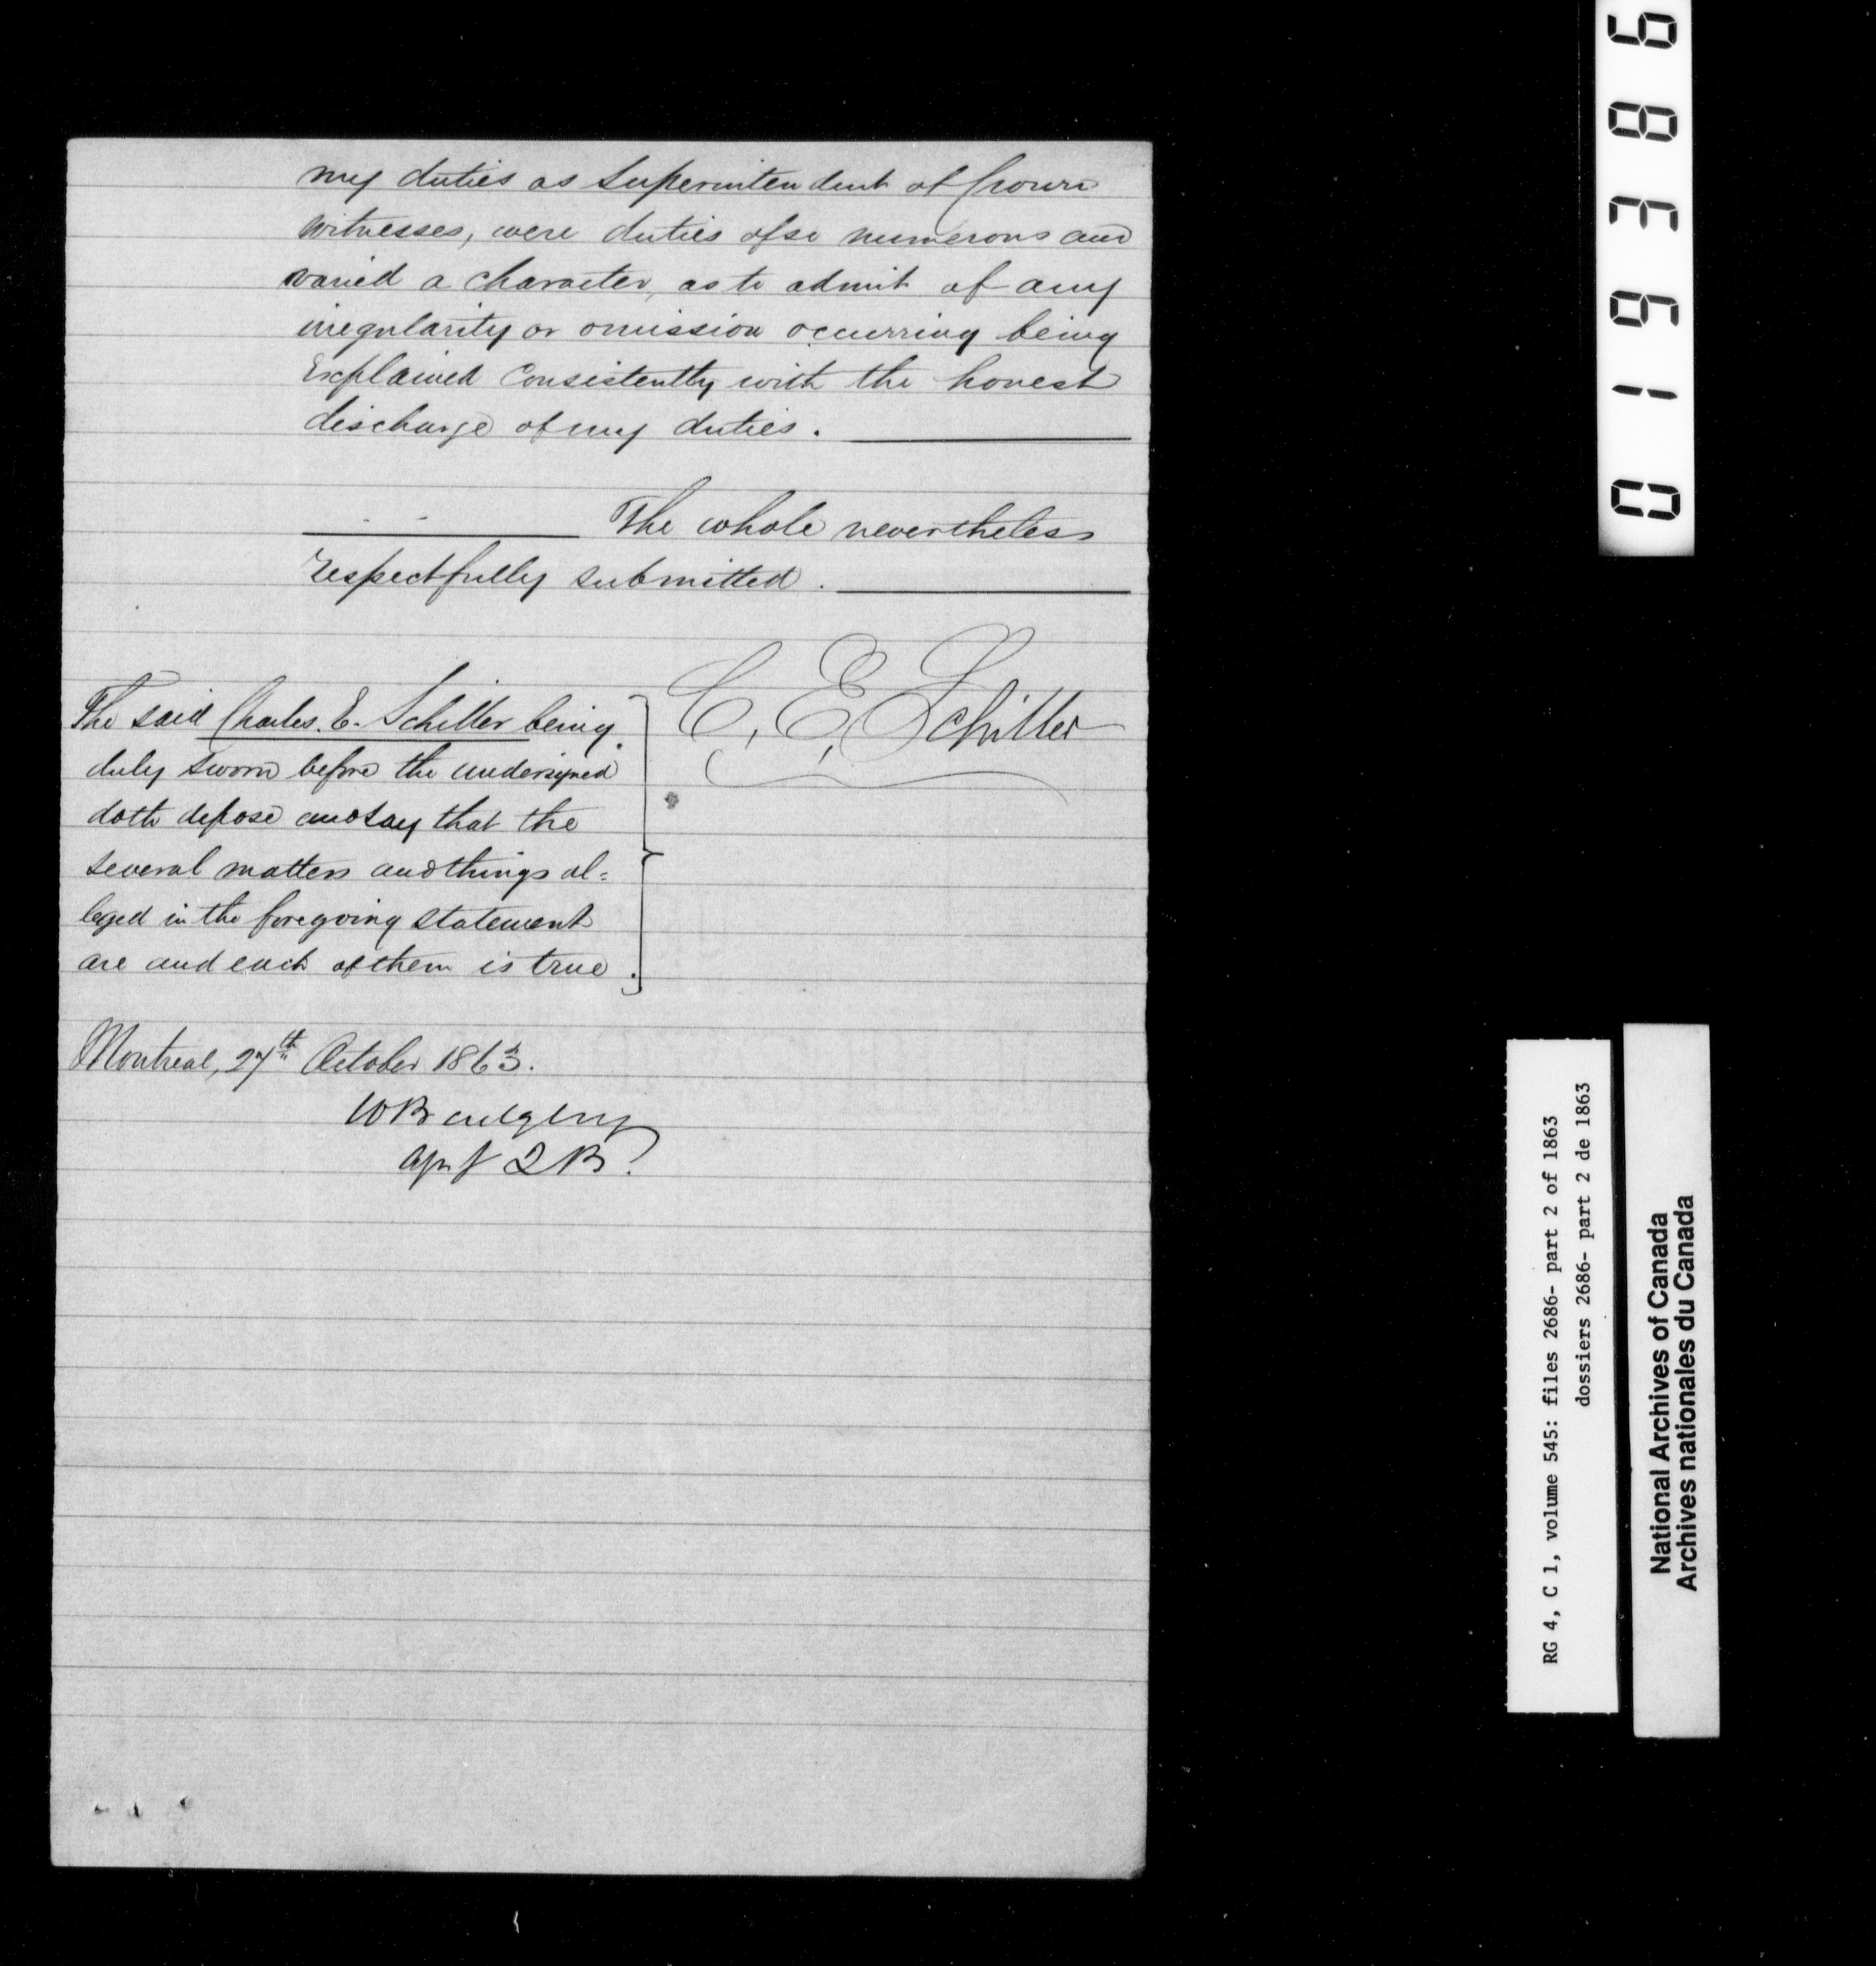 my duties as Superintendent of Crown
witnesses, were duties of so numerous and
varied a character, as to admit of any
irregularity or omission occurring being
Explained Consistently with the honest
discharge of my duties.
The whole nevertheless
respectfully submitted.
C, E, Schiller
The said Charles. E. Schiller being
duly sworn before the undersigned
doth depose and say that the
several matters and things al=
leged in the foregoing statement
are and each of them is true.
Montreal, 27th October 1863.
019386
RG 4, C 1, volume 545: files 2686- part 2 of 1863
dossiers 2686- part 2 de 1863
National Archives of Canada
Archives nationales du Canada